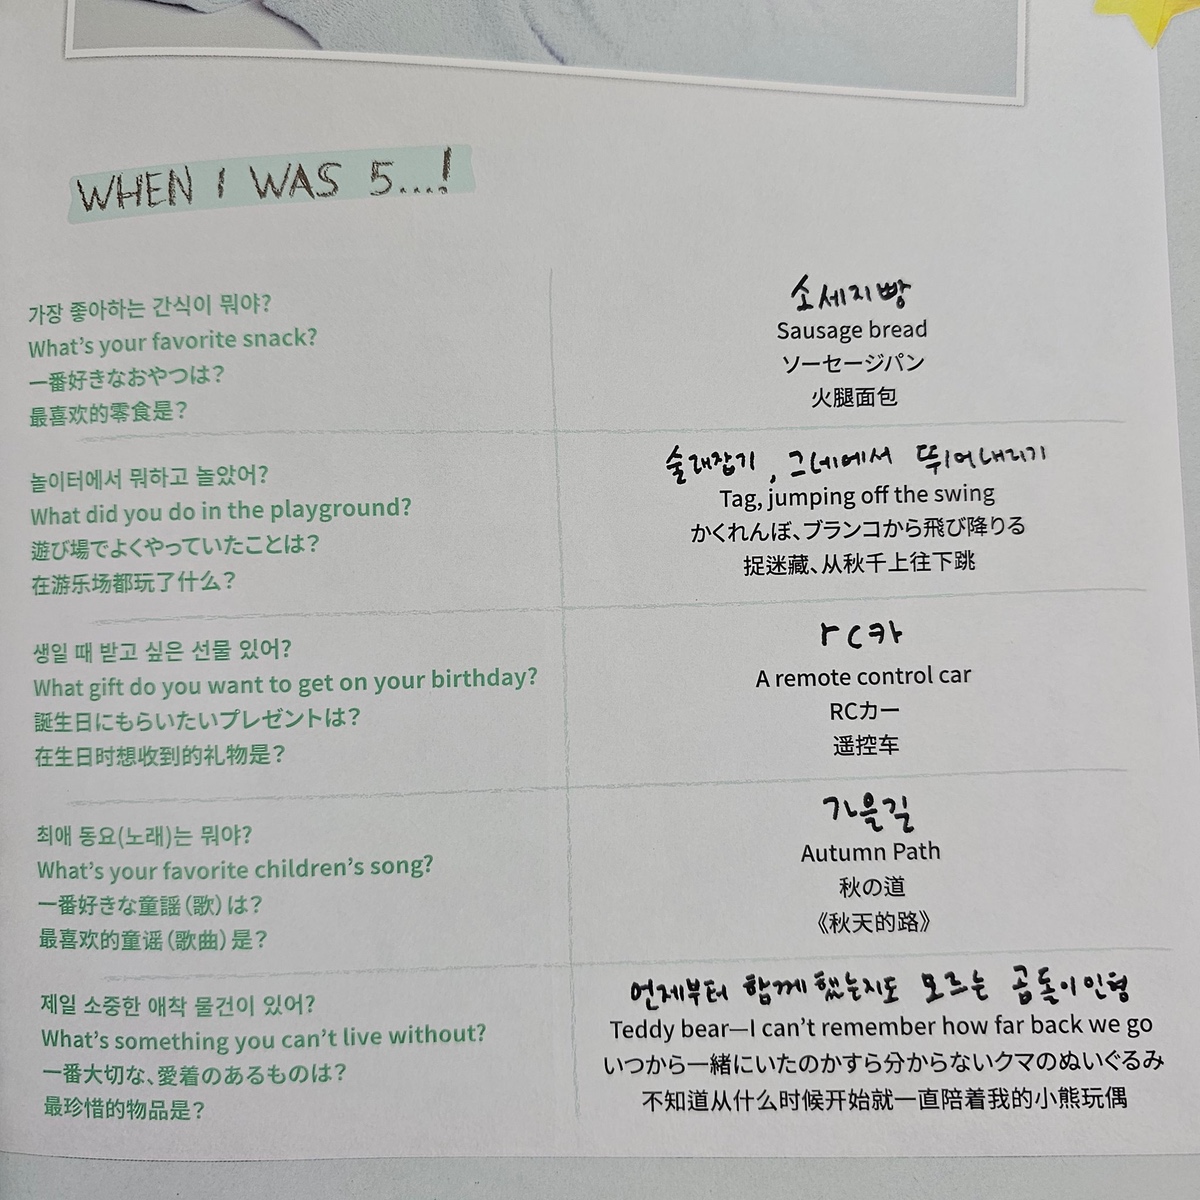 WHEN I WAS 5...!
가장 좋아하는 간식이 뭐야?
What's your favorite snack?
一番好きなおやつは?
最喜欢的零食是?
소세지빵
Sausage bread
ソーセージパン
火腿面包
놀이터에서 뭐하고 놀았어?
What did you do in the playground?
遊び場でよくやっていたことは?
在游乐场都玩了什么?
술래잡기, 그네에서 뛰어내리기
Tag, jumping off the swing
かくれんぼ、ブランコから飛び降りる
捉迷藏、从秋千上往下跳
생일 때 받고 싶은 선물 있어?
What gift do you want to get on your birthday?
誕生日にもらいたいプレゼントは?
在生日时想收到的礼物是?
rc카
A remote control car
RCカー
遥控车
최애 동요(노래)는 뭐야?
What's your favorite children's song?
一番好きな童謡(歌)は?
最喜欢的童谣(歌曲)是?
가을길
Autumn Path
秋の道
《秋天的路》
제일 소중한 애착 물건이 있어?
What's something you can't live without?
一番大切な、愛着のあるものは?
最珍惜的物品是?
언제부터 함께했는지도 모르는 곰돌이인형
Teddy bear—I can't remember how far back we go
いつから一緒にいたのかすら分からないクマのぬいぐるみ
不知道从什么时候开始就一直陪着我的小熊玩偶